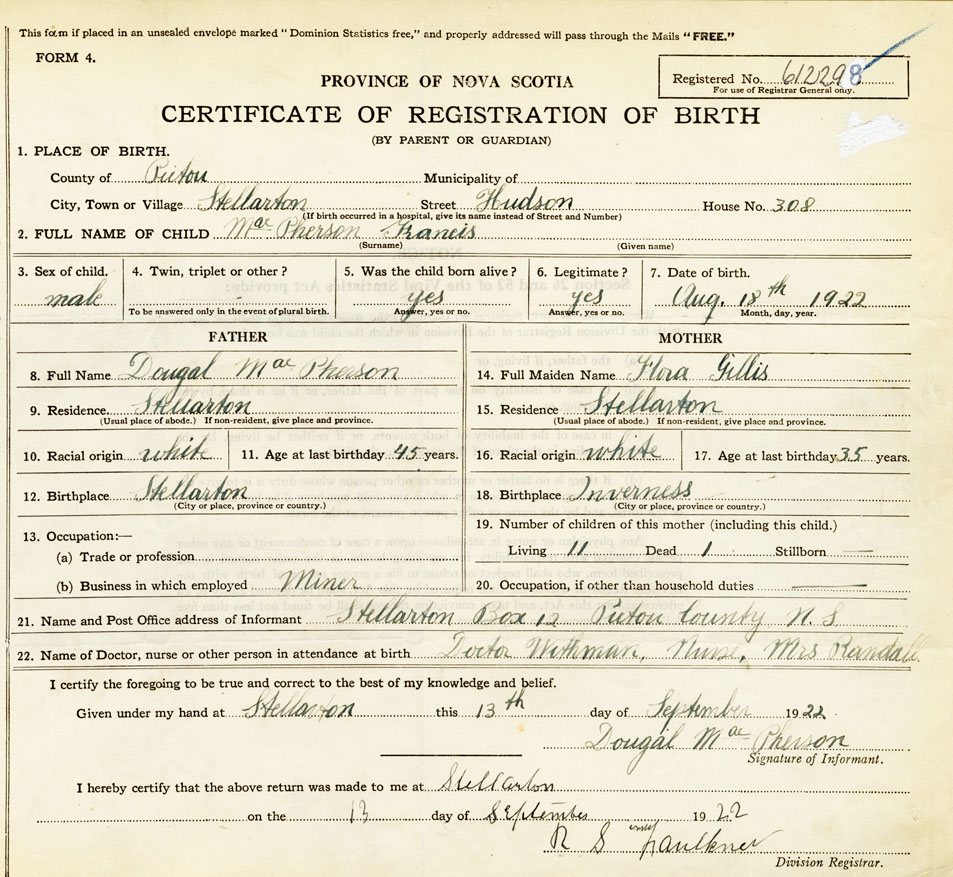 This form if placed in an unsealed envelope marked "Dominion Statistics free," and properly addressed will pass through the Mails "FREE."
FORM 4.
Registered No. 612298
For use of Registrar General only.
PROVINCE OF NOVA SCOTIA
CERTIFICATE OF REGISTRATION OF BIRTH
(BY PARENT OR GUARDIAN)
1. PLACE OF BIRTH.
County of Pictou Municipality of
City, Town or Village Stellarton Street Hudson House No. 308
(If birth occurred in a hospital, give its name instead of Street and Number)
2. FULL NAME OF CHILD MacPherson Francis
(Surname) (Given name)
3. Sex of child. 4. Twin, triplet or other? 5. Was the child born alive? 6. Legitimate? 7. Date of birth.
male yes yes Aug. 18th 1922
To be answered only in the event of plural birth. Answer, yes or no. Answer, yes or no. Month, day, year.
FATHER MOTHER
8. Full Name Dougal MacPherson 14. Full Maiden Name Flora Gillis
9. Residence. Stellarton 15. Residence Stellarton
(Usual place of abode.) If non-resident, give place and province. (Usual place of abode.) If non-resident, give place and province.
10. Racial origin white 11. Age at last birthday 45 years. 16. Racial origin white 17. Age at last birthday 35 years.
12. Birthplace Stellarton 18. Birthplace Inverness
(City or place, province or country.) (City or place, province or country.)
13. Occupation:— 19. Number of children of this mother (including this child.)
(a) Trade or profession Living 11 Dead 1 Stillborn —
(b) Business in which employed Miner 20. Occupation, if other than household duties —
21. Name and Post Office address of Informant Stellarton Box 12 Pictou County N. S
22. Name of Doctor, nurse or other person in attendance at birth Doctor Withman, Nurse, Mrs Randall
I certify the foregoing to be true and correct to the best of my knowledge and belief.
Given under my hand at Stellarton this 13th day of September 1922
Dougal MacPherson
Signature of Informant.
I hereby certify that the above return was made to me at Stellarton
on the 13 day of September 1922
R S Faulkner
Division Registrar.